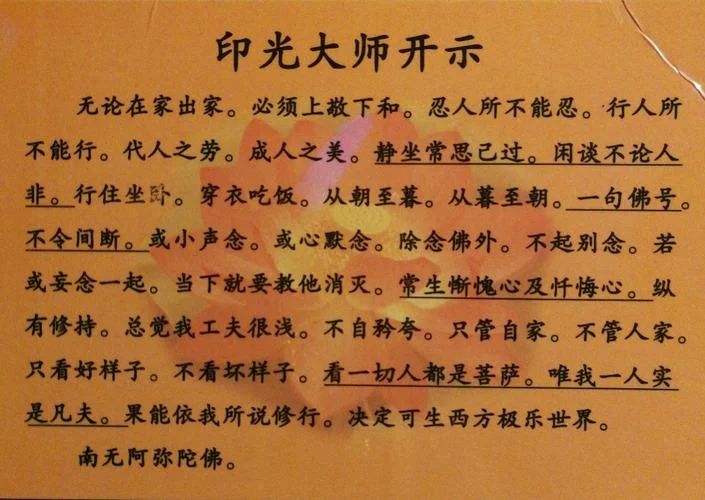 印光大师开示
无论在家出家。必须上敬下和。忍人所不能忍。行人所
不能行。代人之劳。成人之美。静坐常思己过。闲谈不论人
非。行住坐卧。穿衣吃饭。从朝至暮。从暮至朝。一句佛号。
不令间断。或小声念。或心默念。除念佛外。不起别念。若
或妄念一起。当下就要教他消灭。常生惭愧心及忏悔心。纵
有修持。总觉我工夫很浅。不自矜夸。只管自家。不管人家。
只看好样子。不看坏样子。看一切人都是菩萨。唯我一人实
是凡夫。果能依我所说修行。决定可生西方极乐世界。
南无阿弥陀佛。